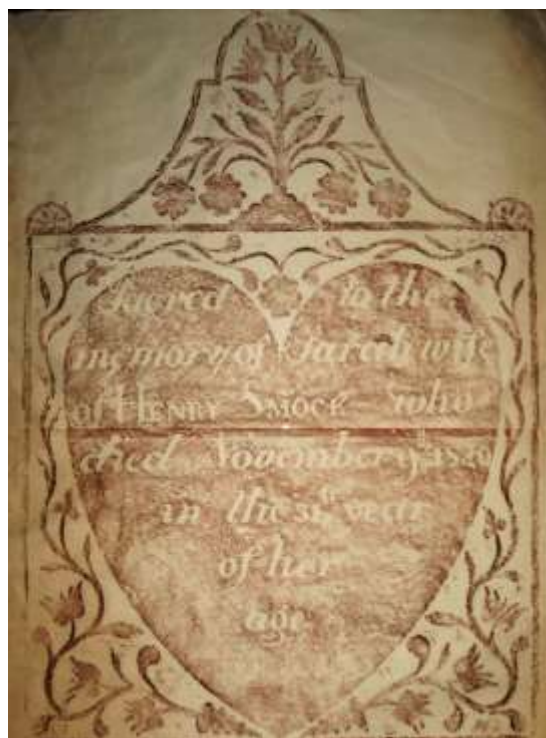 Sacred to the
memory of Sarah wife
of HENRY SMOCK who
died November
in the year
of her
age